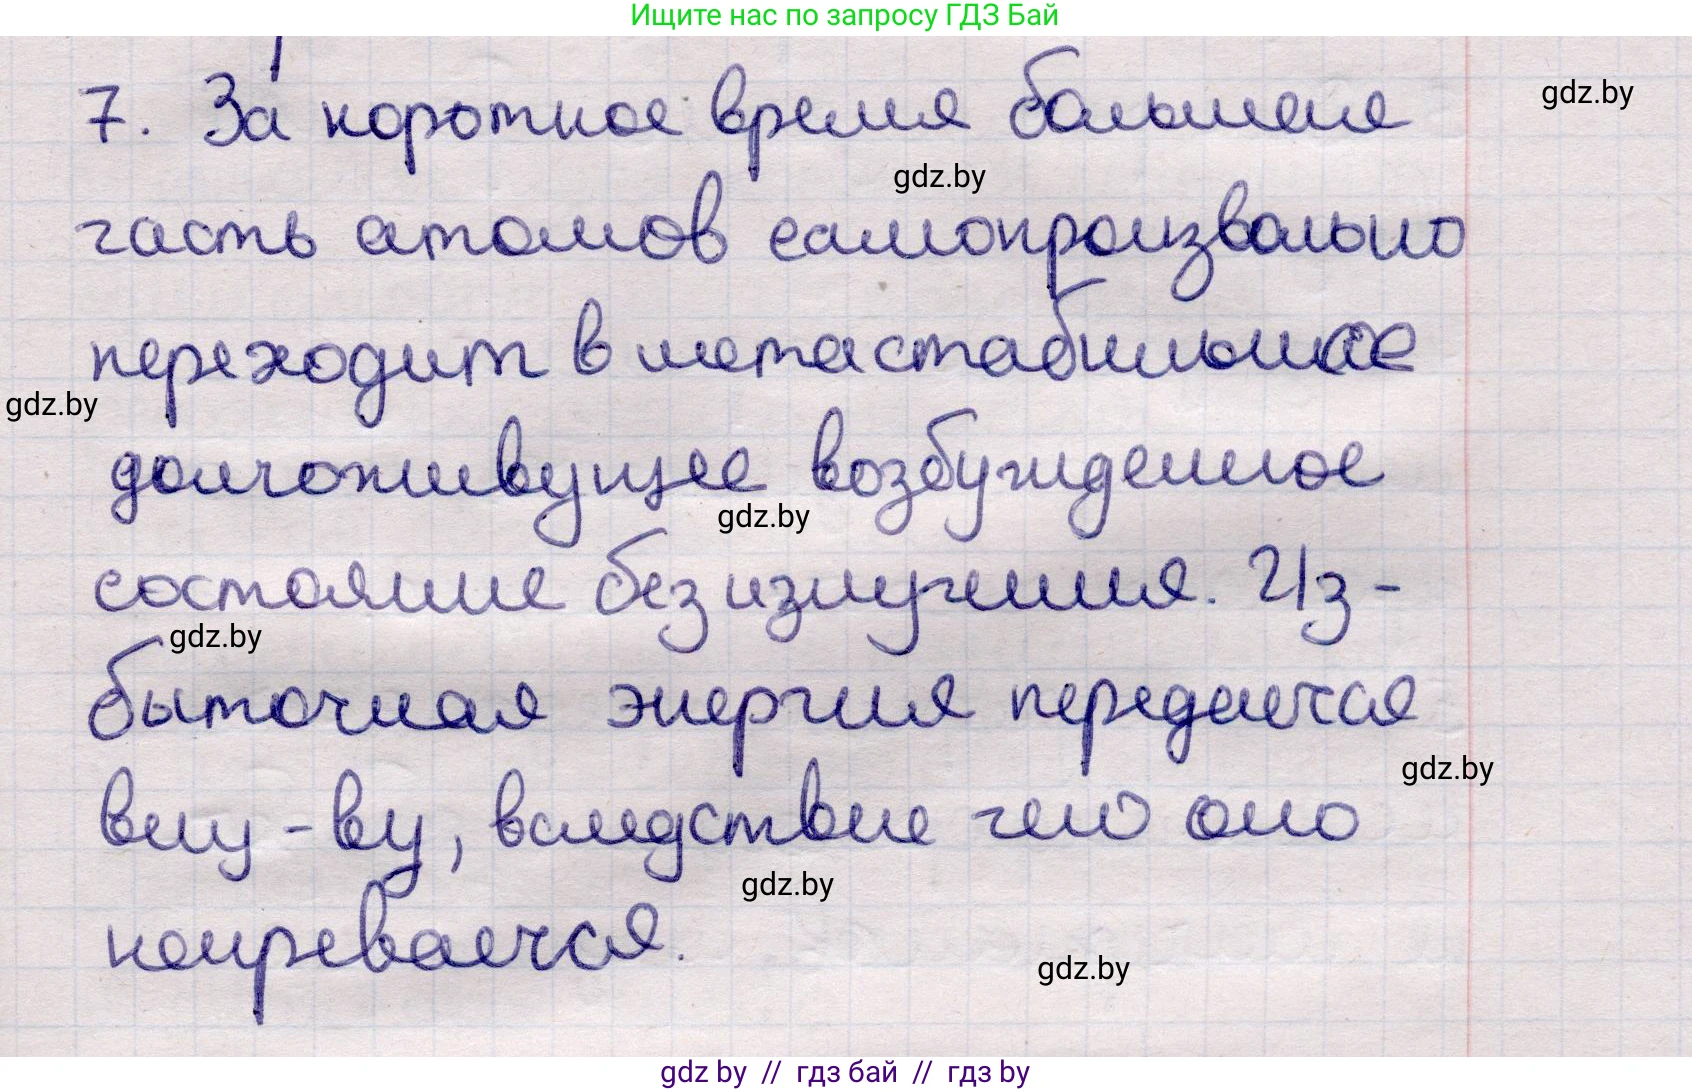 Ищите нас по запросу ГДЗ Бай
7. За короткое время большая
gdz.by
gdz.by
часть атомов самопроизвольно
переходит в метастабильное
gdz.by
долгоживущее возбужденное
gdz.by
состояние без излучения. Из-
gdz.by
быточная энергия передается
gdz.by
вещ-ву, вследствие чего оно
gdz.by
нагревается.
gdz.by
gdz by // гдз бай // гдз by